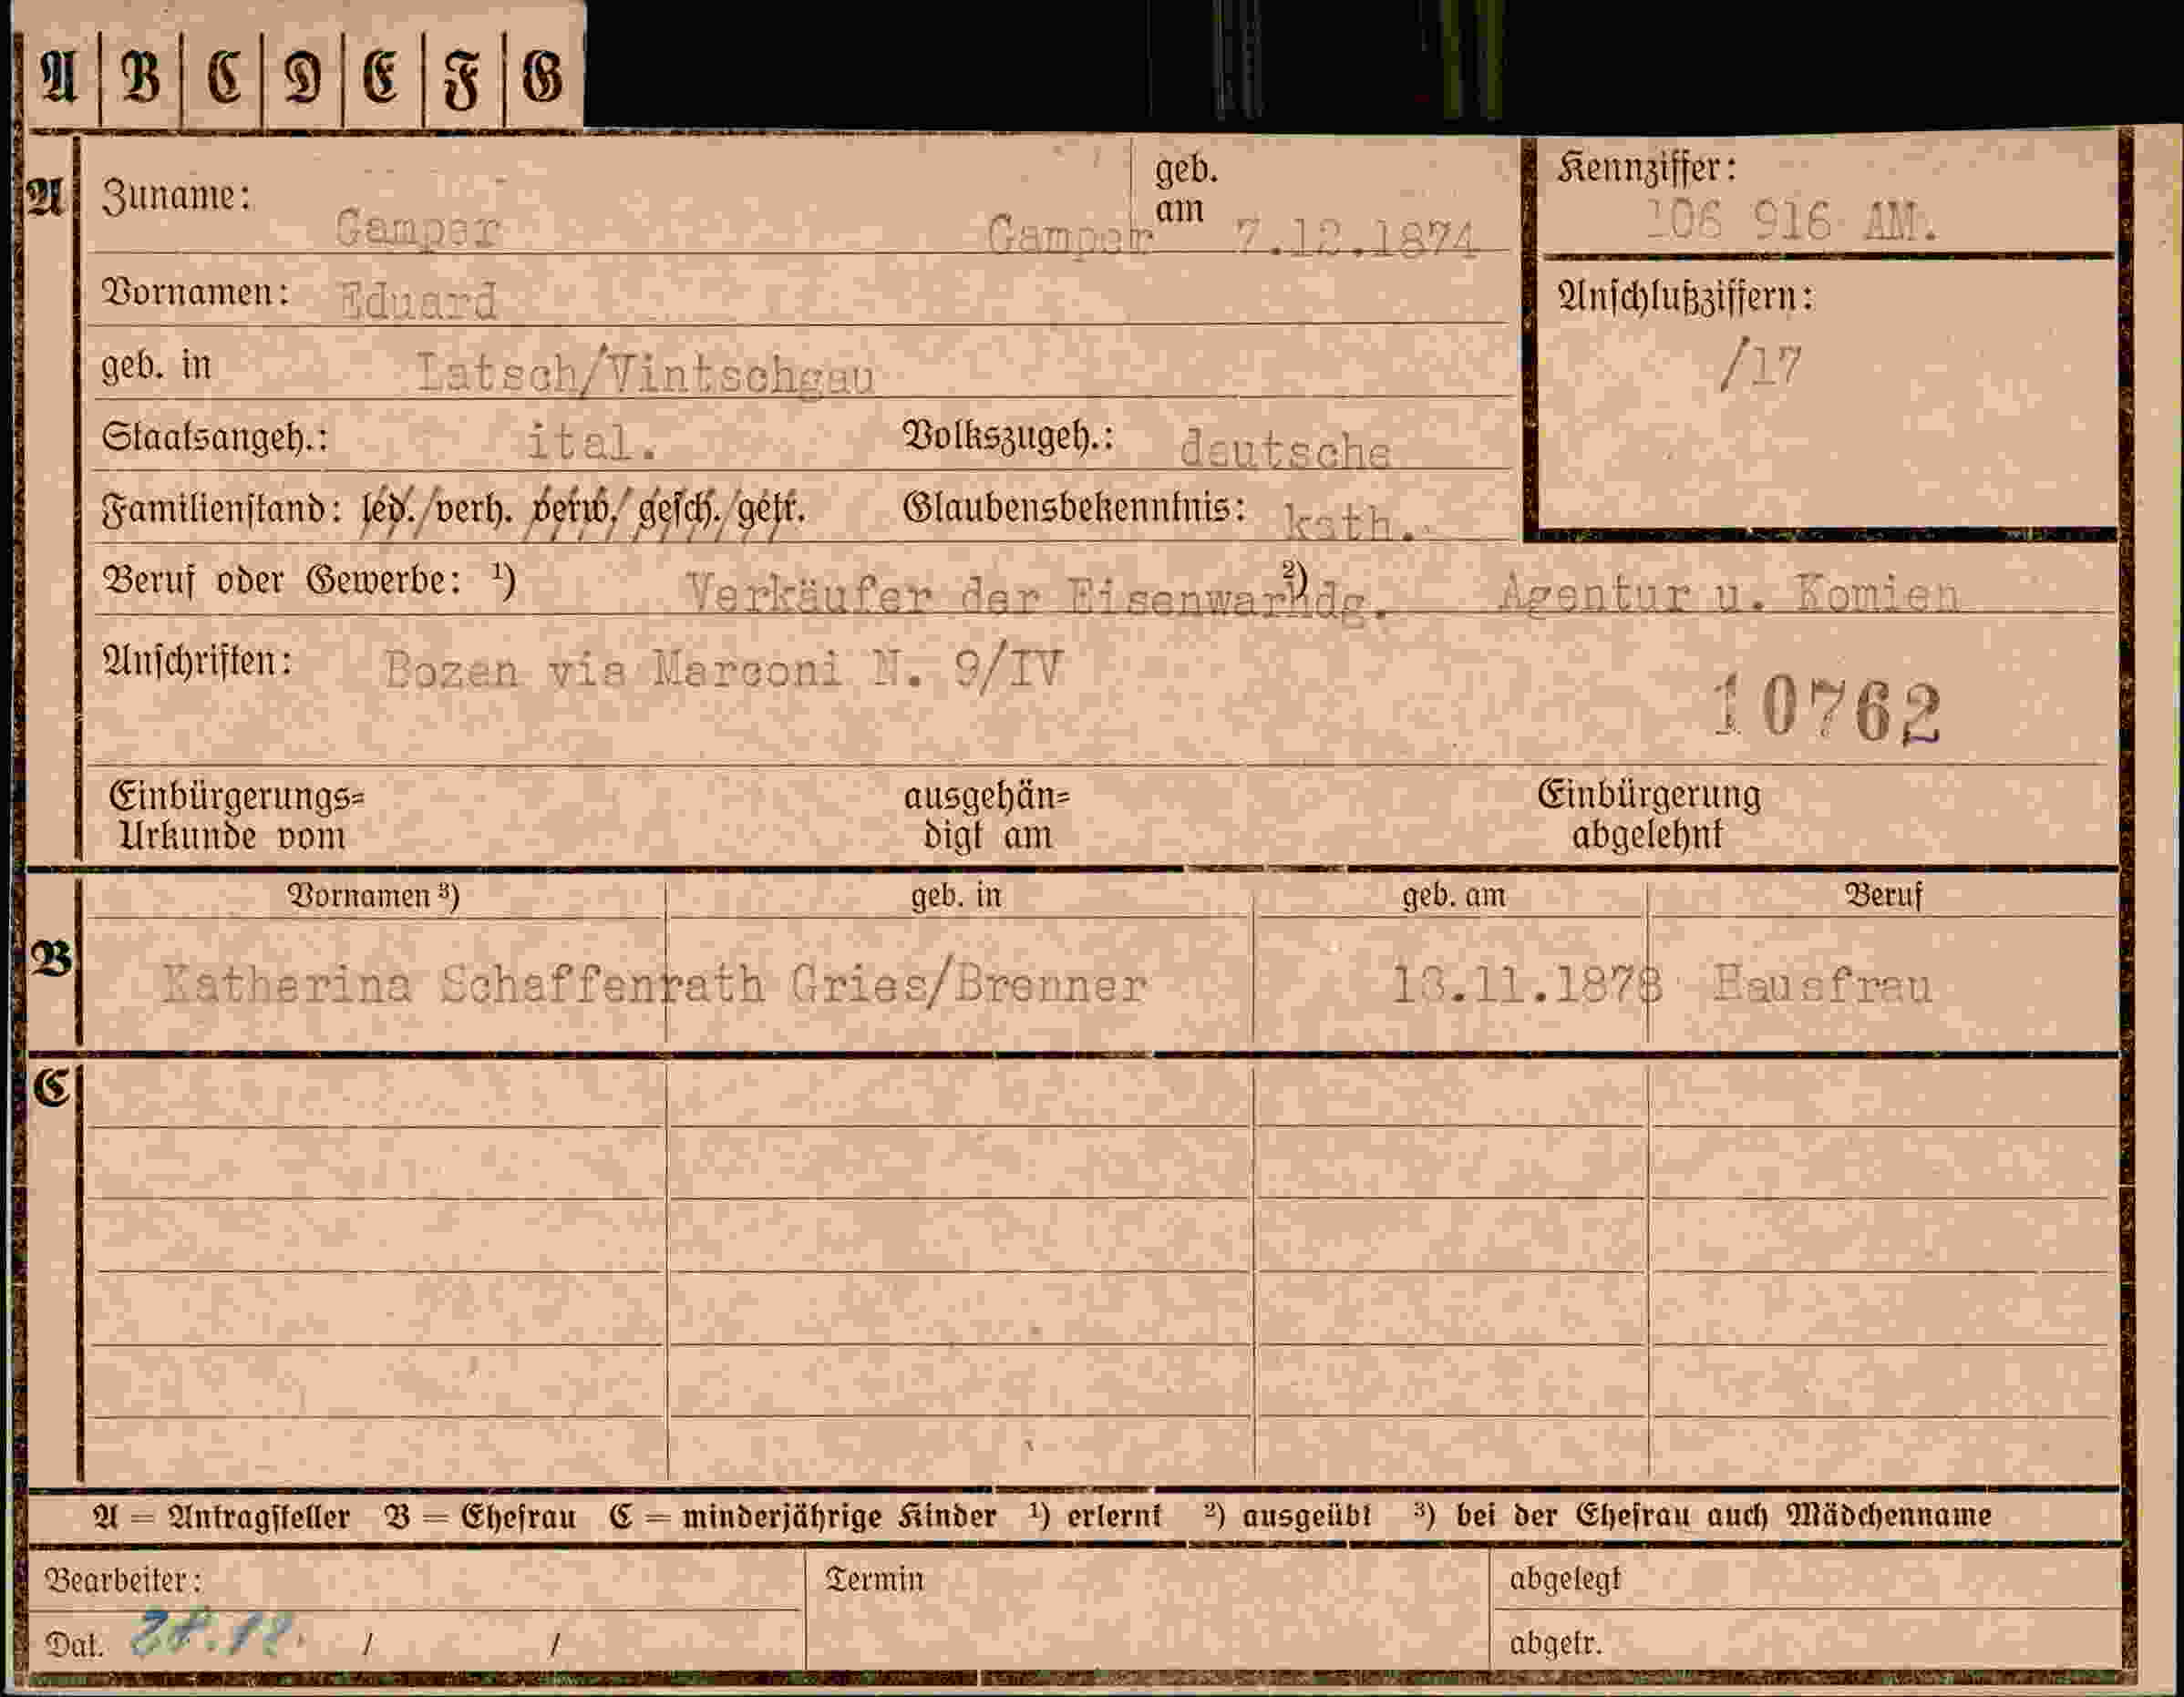 A B C D E F G
A Zuname: Gamper Gamper geb. am 7.12.1874
Kennziffer: 106 916 AM.
Vornamen: Eduard
Anschlußziffern: /17
geb. in Latsch/Vintschgau
Staatsangeh.: ital. Volkszugeh.: deutsche
Familienstand: led./verh. verw./gesch./getr. Glaubensbekenntnis: kath.
Beruf oder Gewerbe: ¹) Verkäufer der Eisenwarhdg. ²) Agentur u. Komien
Anschriften: Bozen via Marconi N. 9/IV
10762
Einbürgerungs= Urkunde vom ausgehän= digt am Einbürgerung abgelehnt
Vornamen ³) geb. in geb. am Beruf
B Katherina Schaffenrath Gries/Brenner 13.11.1878 Hausfrau
C
A = Antragsteller B = Ehefrau C = minderjährige Kinder ¹) erlernt ²) ausgeübt ³) bei der Ehefrau auch Mädchenname
Bearbeiter: Termin abgelegt
Dat. 28.12. / / abgetr.